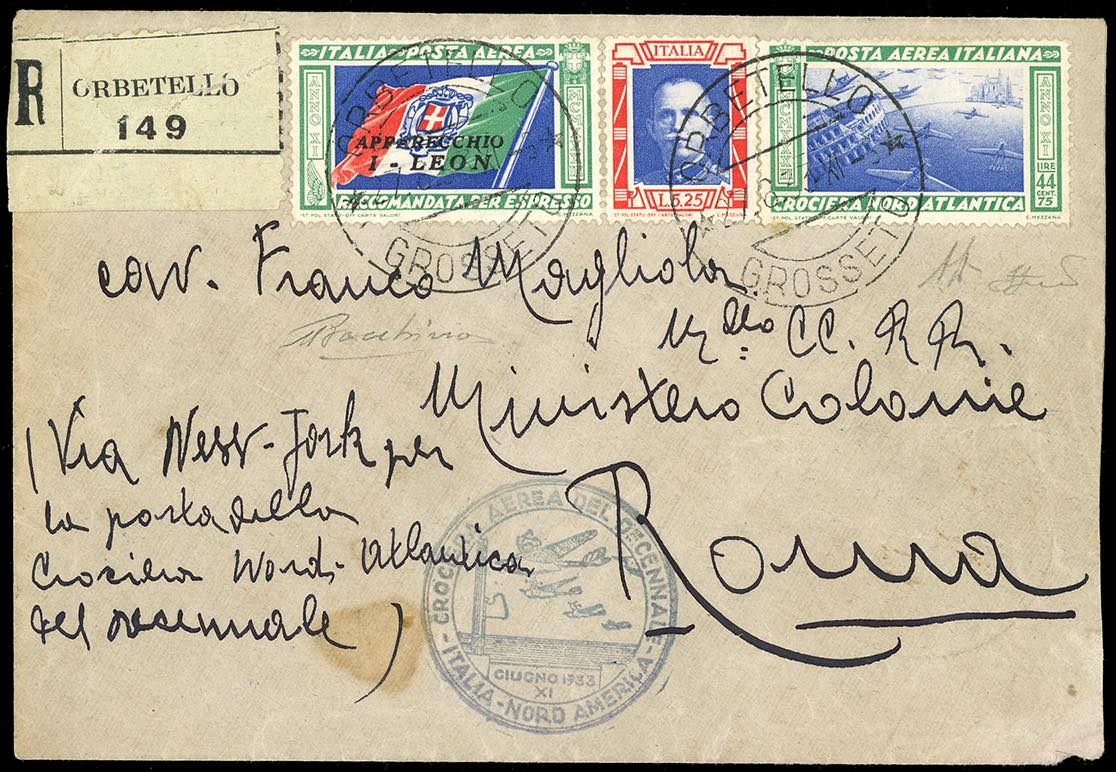 R ORBETELLO
149
ITALIA-POSTA AEREA
ANNO XI
APPARECCHIO
I-LEON
RACCOMANDATA PER ESPRESSO
IST. POL. STATO-OFF. CARTE VALORI C. MEZZANA
ITALIA
L.5.25
IST. POL. STATO-OFF. CARTE VALORI
POSTA AEREA ITALIANA
ANNO XI
LIRE
44
CENT.
75
CROCIERA NORD ATLANTICA
IST. POL. STATO-OFF. CARTE VALORI C. MEZZANA
ORBETELLO
GROSSETO
ORBETELLO
GROSSETO
cav. Franco Magliola
CC. RR.
Ministero Colonie
Roma
(Via New-York per
la posta della
Crociera Nord-Atlantica
del decennale)
CROCIERA AEREA DEL DECENNALE
GIUGNO 1933
XI
ITALIA-NORD AMERICA